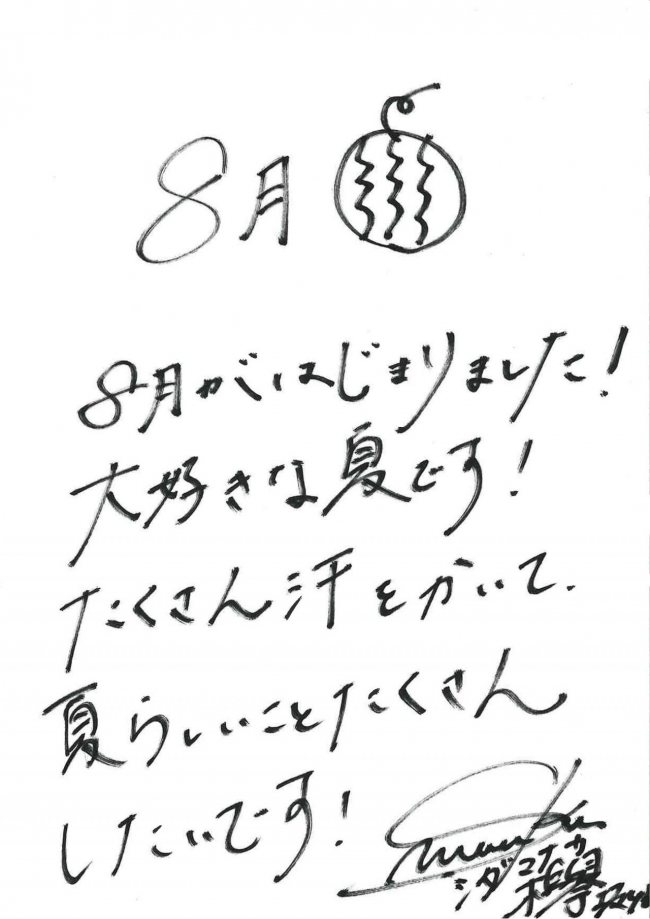 8月
8月がはじまりました!
大好きな夏です!
たくさん汗をかいて、
夏らしいことたくさん
したいです!
シダ